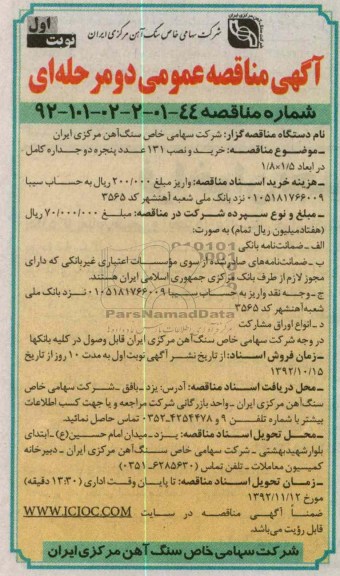 شرکت سهامی خاص سنگ آهن مرکزی ایران
نوبت اول
آگهی مناقصه عمومی دو مرحله‌ای
شماره مناقصه ۴۴-۰۱-۲-۰۲-۱۰۱-۹۲
نام دستگاه مناقصه گزار: شرکت سهامی خاص سنگ‌آهن مرکزی ایران
ـ موضوع مناقصه: خرید و نصب ۱۳۱ عدد پنجره دو جداره کامل
در ابعاد ۱/۵×۱/۸
ـ هزینه خرید اسناد مناقصه: واریز مبلغ ۲۰۰/۰۰۰ ریال به حساب سیبا
۰۱۰۵۱۸۱۷۶۶۰۰۹ نزد بانک ملی شعبه آهنشهر کد ۳۵۶۵
ـ مبلغ و نوع سپرده شرکت در مناقصه: مبلغ ۷۰/۰۰۰/۰۰۰ ریال
(هفتادمیلیون ریال تمام) به صورت:
الف ـ ضمانت‌نامه بانکی
ب ـ ضمانت‌نامه‌های صادره از سوی مؤسسات اعتباری غیربانکی که دارای
مجوز لازم از طرف بانک مرکزی جمهوری اسلامی ایران هستند.
ج ـ وجه نقد واریز به حساب سیبا ۰۱۰۵۱۸۱۷۶۶۰۰۹ نزد بانک ملی
شعبه آهنشهر کد ۳۵۶۵
د ـ انواع اوراق مشارکت
در وجه شرکت سهامی خاص سنگ‌آهن مرکزی ایران قابل وصول در کلیه بانکها
ـ زمان فروش اسناد: از تاریخ نشر آگهی نوبت اول به مدت ۱۰ روز از تاریخ
۱۳۹۲/۱۰/۱۵
ـ محل دریافت اسناد مناقصه: آدرس: یزد ـ بافق ـ شرکت سهامی خاص
سنگ‌آهن مرکزی ایران ـ واحد بازرگانی شرکت مراجعه و یا جهت کسب اطلاعات
بیشتر با شماره تلفن ۹ و ۴۲۵۴۴۷۸-۰۳۵۲ تماس حاصل نمائید.
ـ محل تحویل اسناد مناقصه: یزد ـ میدان امام حسین(ع) ـ ابتدای
بلوار شهید بهشتی ـ شرکت سهامی خاص سنگ‌آهن مرکزی ایران ـ دبیرخانه
کمیسیون معاملات ـ تلفن تماس (۶۲۸۵۶۳۰-۰۳۵۱)
ـ زمان تحویل اسناد مناقصه: تا پایان وقت اداری (۱۳:۳۰ دقیقه)
مورخ ۱۳۹۲/۱۱/۱۲
ضمناً آگهی مناقصه در سایت WWW.ICIOC.COM
قابل رؤیت می‌باشد.
شرکت سهامی خاص سنگ آهن مرکزی ایران
ParsNamadData